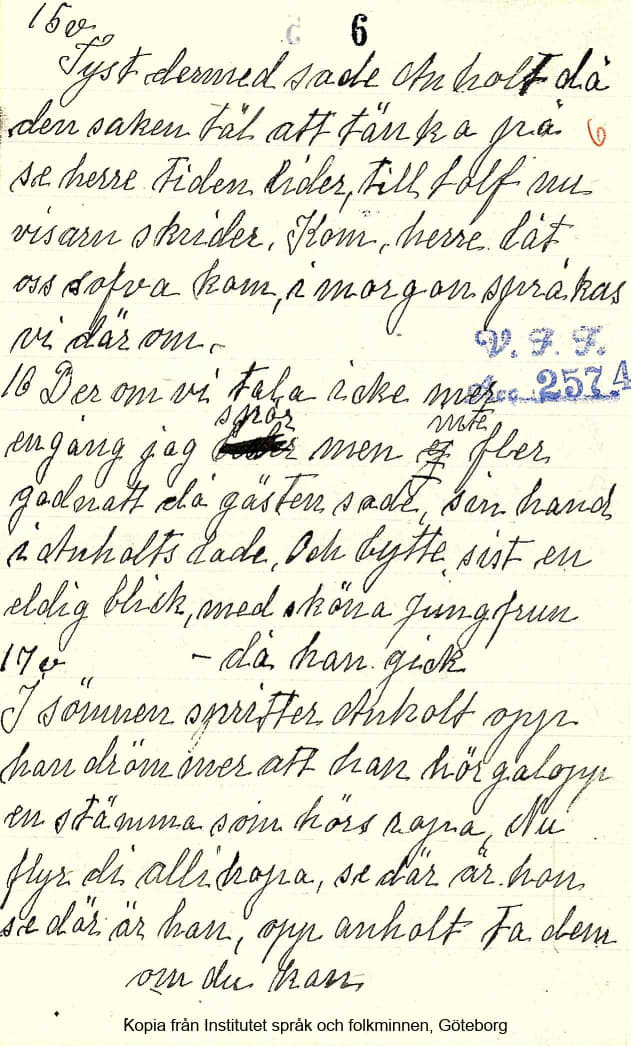 15v
6
Tyst dermed sade Anholt då
den saken tål att tänka på
6
se herre tiden lider, till tolf nu
visarn skrider. Kom, herre låt
oss sofva kom, i morgon språkas
vi där om.
V. F. F.
16 Der om vi tala icke mer
Acc. 2574
spör inte
en gång jag men ej fler
godnatt då gästen sade, sin hand
i Anholts lade, Och bytte sist en
eldig blick, med sköna Jungfrun
17v – då han gick
I sömnen spritter Anholt opp
han drömmer att han hör galopp
en stämma som hörs ropa, Nu
flyr di alli hopa, se där är hon
se där är han, opp anholt ta dem
om du kan
Kopia från Institutet språk och folkminnen, Göteborg